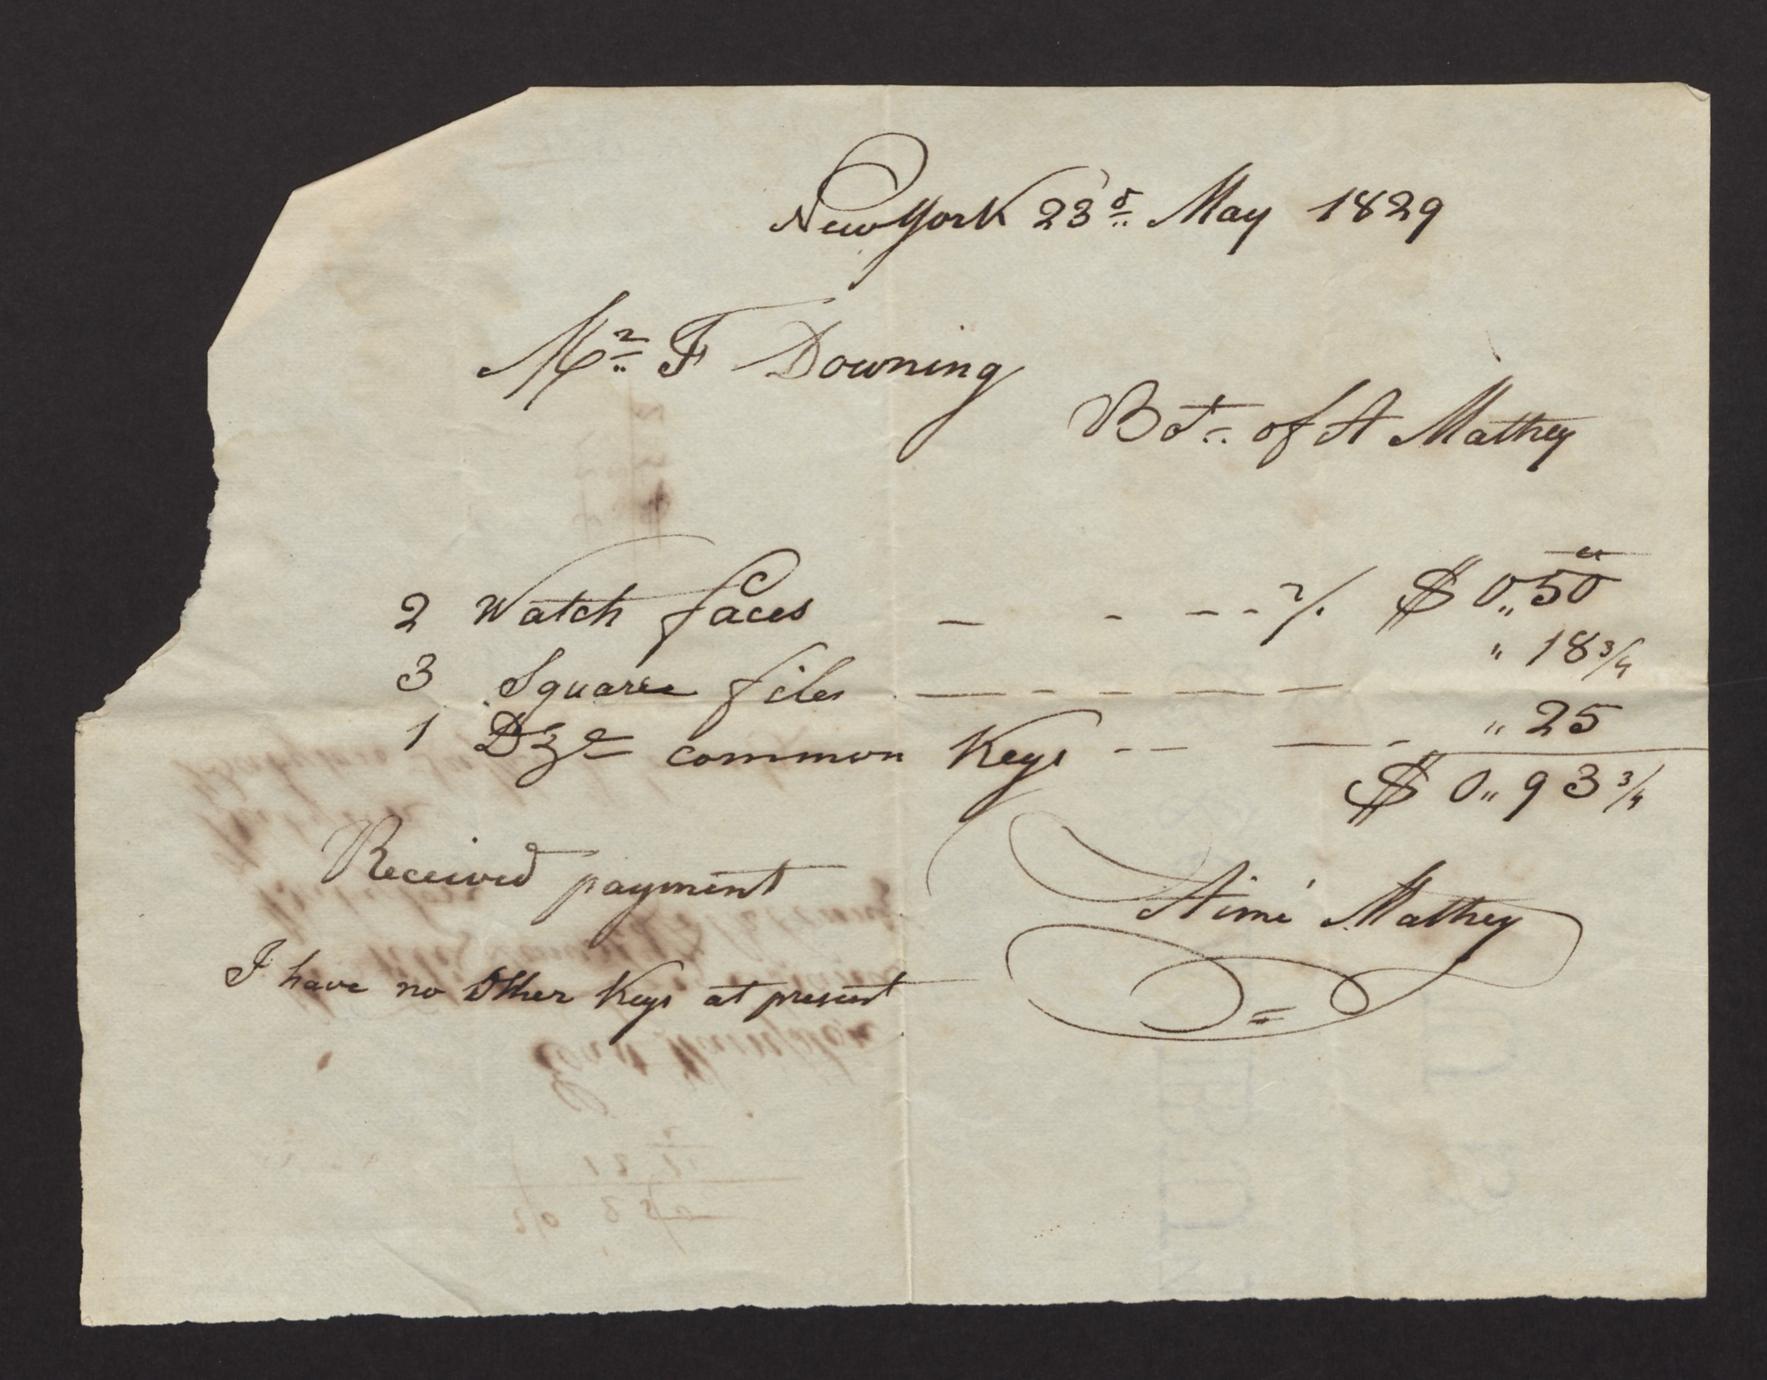 New York 23d May 1829
Mr F Downing
Bot of A Mathey
2 Watch faces — - - - 2/. $ 0,,50
3 Square files — - - — — " 18 3/4
1 Dze common Keys - - — - " 25
$ 0,,93 3/4
Received payment
Aimé Mathey
I have no other Keys at present
East Hampton